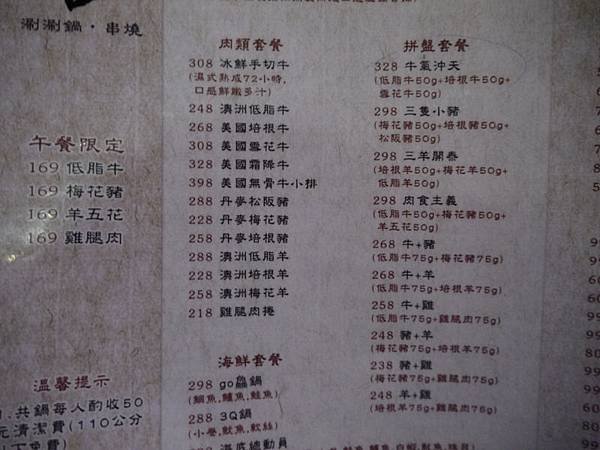 涮涮鍋·串燒
午餐限定
169 低脂牛
169 梅花豬
169 羊五花
169 雞腿肉
溫馨提示
共鍋每人酌收50
元清潔費(110公分
肉類套餐
308 冰鮮手切牛
(濕式熟成72小時,
口感鮮嫩多汁)
248 澳洲低脂牛
268 美國培根牛
308 美國雪花牛
328 美國霜降牛
398 美國無骨牛小排
288 丹麥松阪豬
228 丹麥梅花豬
258 丹麥培根豬
288 澳洲低脂羊
228 澳洲培根羊
258 澳洲梅花羊
218 雞腿肉捲
海鮮套餐
298 go鱻鍋
(鯛魚,鱸魚,鮭魚)
288 3Q鍋
(小卷,魷魚,軟絲)
海底總動員
拼盤套餐
328 牛氣沖天
(低脂牛50g+培根牛50g+
雪花牛50g)
298 三隻小豬
(梅花豬50g+培根豬50g+
松阪豬50g)
298 三羊開泰
(培根羊50g+梅花羊50g+
低脂羊50g)
298 肉食主義
(低脂牛50g+梅花豬50g+
羊五花50g)
268 牛+豬
(低脂牛75g+梅花豬75g)
268 牛+羊
(低脂牛75g+培根羊75g)
258 牛+雞
(低脂牛75g+雞腿肉75g)
248 豬+羊
(梅花豬75g+培根羊75g)
238 豬+雞
(梅花豬75g+雞腿肉75g)
248 羊+雞
(培根羊75g+雞腿肉75g)